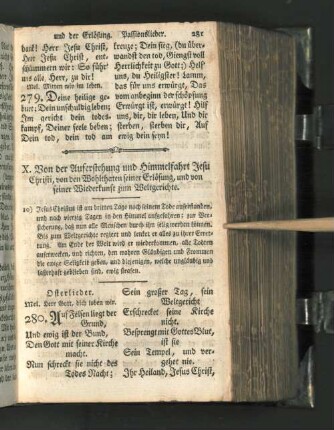 und der Erlösung. Passionslieder. 281
dank! Herr Jesu Christ,
Herr Jesu Christ, ent-
schlummern wir: So führ'
uns alle, Herr, zu dir!
Mel. Mitten wir im leben.
279. Deine heilige ge-
burt; Dein unschuldig leben;
Im gericht dein todes-
kampf, Deiner seele beben;
Dein tod, dein tod am
kreuze; Dein sieg, (du über-
wandst den tod, Giengst voll
Herrlichkeit zu Gott:) Helf'
uns, du Heiligster! Lamm,
das für uns erwürgt, Das
vom anbeginn der schöpfung
Erwürgt ist, erwürgt! Hilf
uns, dir, dir leben, Und dir
sterben, sterben dir, Auf
ewig dein seyn!
X. Von der Auferstehung und Himmelfahrt Jesu
Christi, von den Wohlthaten seiner Erlösung, und von
seiner Wiederkunft zum Weltgerichte.
10) Jesus Christus ist am dritten Tage nach seinem Tode auferstanden,
und nach vierzig Tagen in den Himmel aufgefahren: zur Ver-
sicherung, daß nun alle Menschen durch ihn selig werden können.
Bis zum Weltgerichte regiert und lenket er alles zu ihrer Erret-
tung. Am Ende der Welt wird er wiederkommen, alle Todten
auferwecken, und richten, den wahren Gläubigen und Frommen
die ewige Seligkeit geben, und diejenigen, welche ungläubig und
lasterhaft geblieben sind, ewig strafen.
Osterlieder.
Mel. Herr Gott, dich loben wir.
280. Auf Felsen liegt der
Grund,
Und ewig ist der Bund,
Den Gott mit seiner Kirche
macht.
Nun schreckt sie nicht des
Todes Nacht;
Sein großer Tag, sein
Weltgericht
Erschrecket seine Kirche
nicht.
Besprengt mit Gottes Blut,
ist sie
Sein Tempel, und ver-
gehet nie.
Ihr Heiland, Jesus Christ,